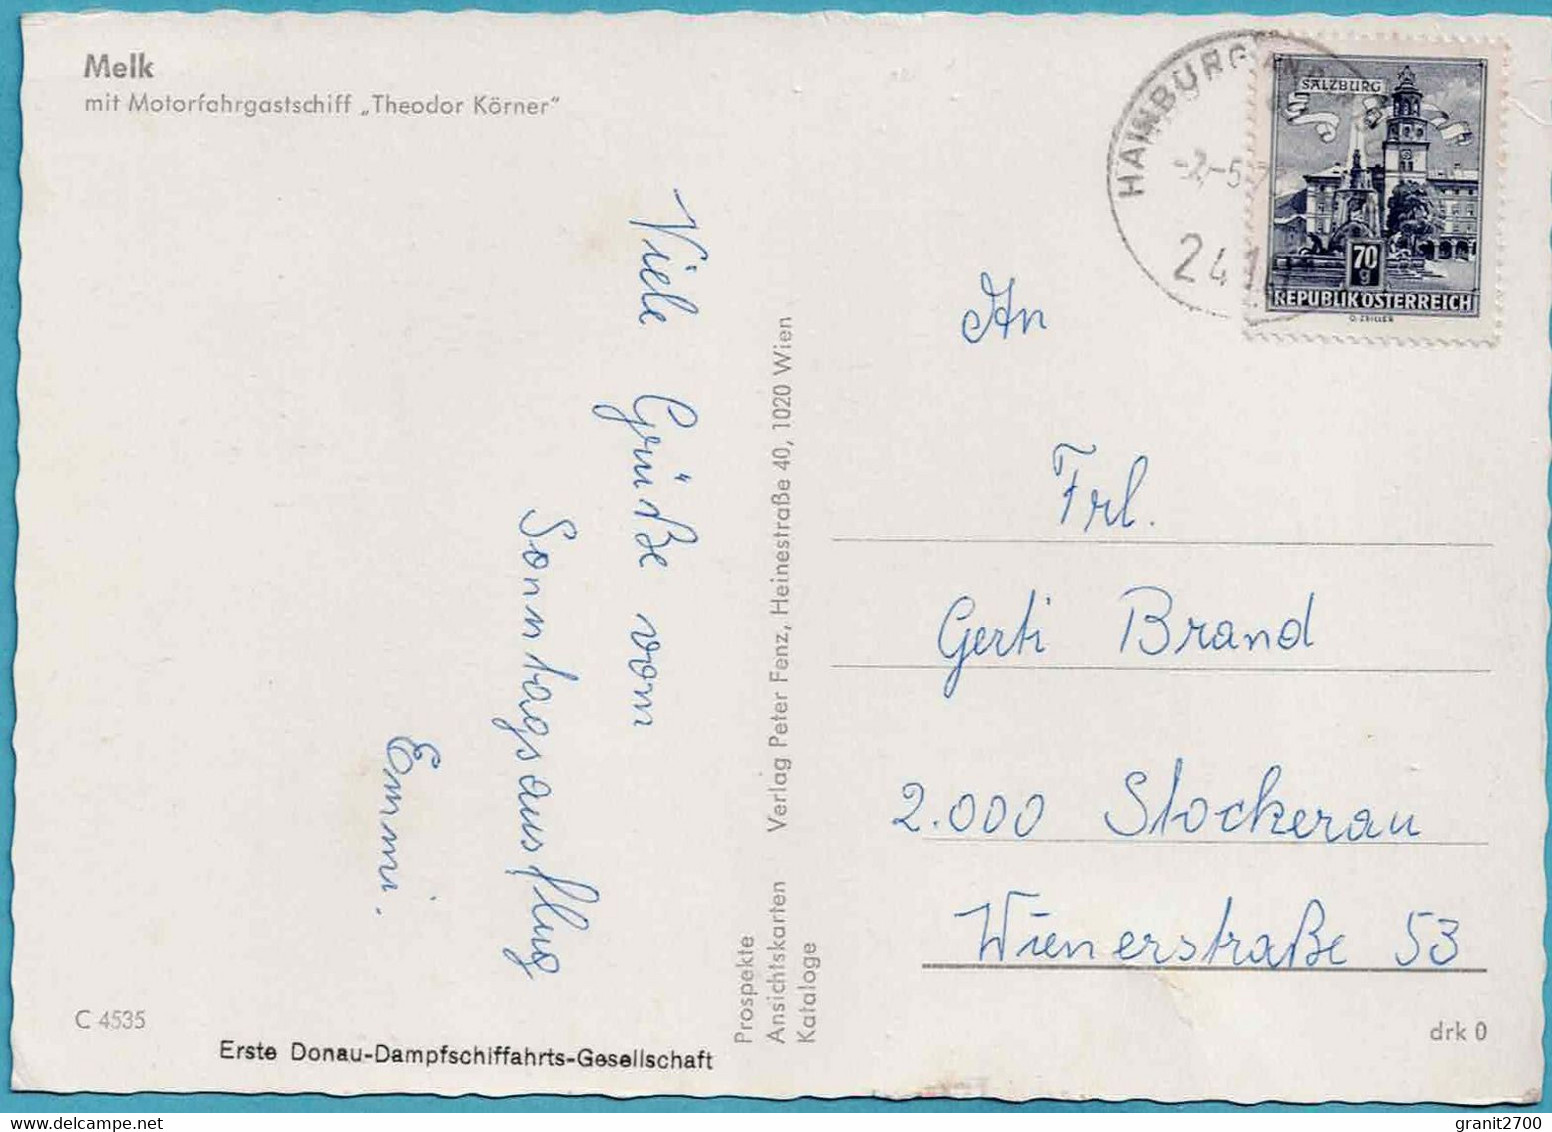 Melk
mit Motorfahrgastschiff „Theodor Körner“
Viele Grüße vom
Sonntagsausflug
Emmi.
C 4535
Erste Donau-Dampfschiffahrts-Gesellschaft
Prospekte
Ansichtskarten
Kataloge
Verlag Peter Fenz, Heinestraße 40, 1020 Wien
HAINBURG
-2.-5.
241
SALZBURG
70
g
REPUBLIK ÖSTERREICH
O. ZEILLER
An
Frl.
Gerti Brand
2.000 Stockerau
Wienerstraße 53
drk 0
granit2700